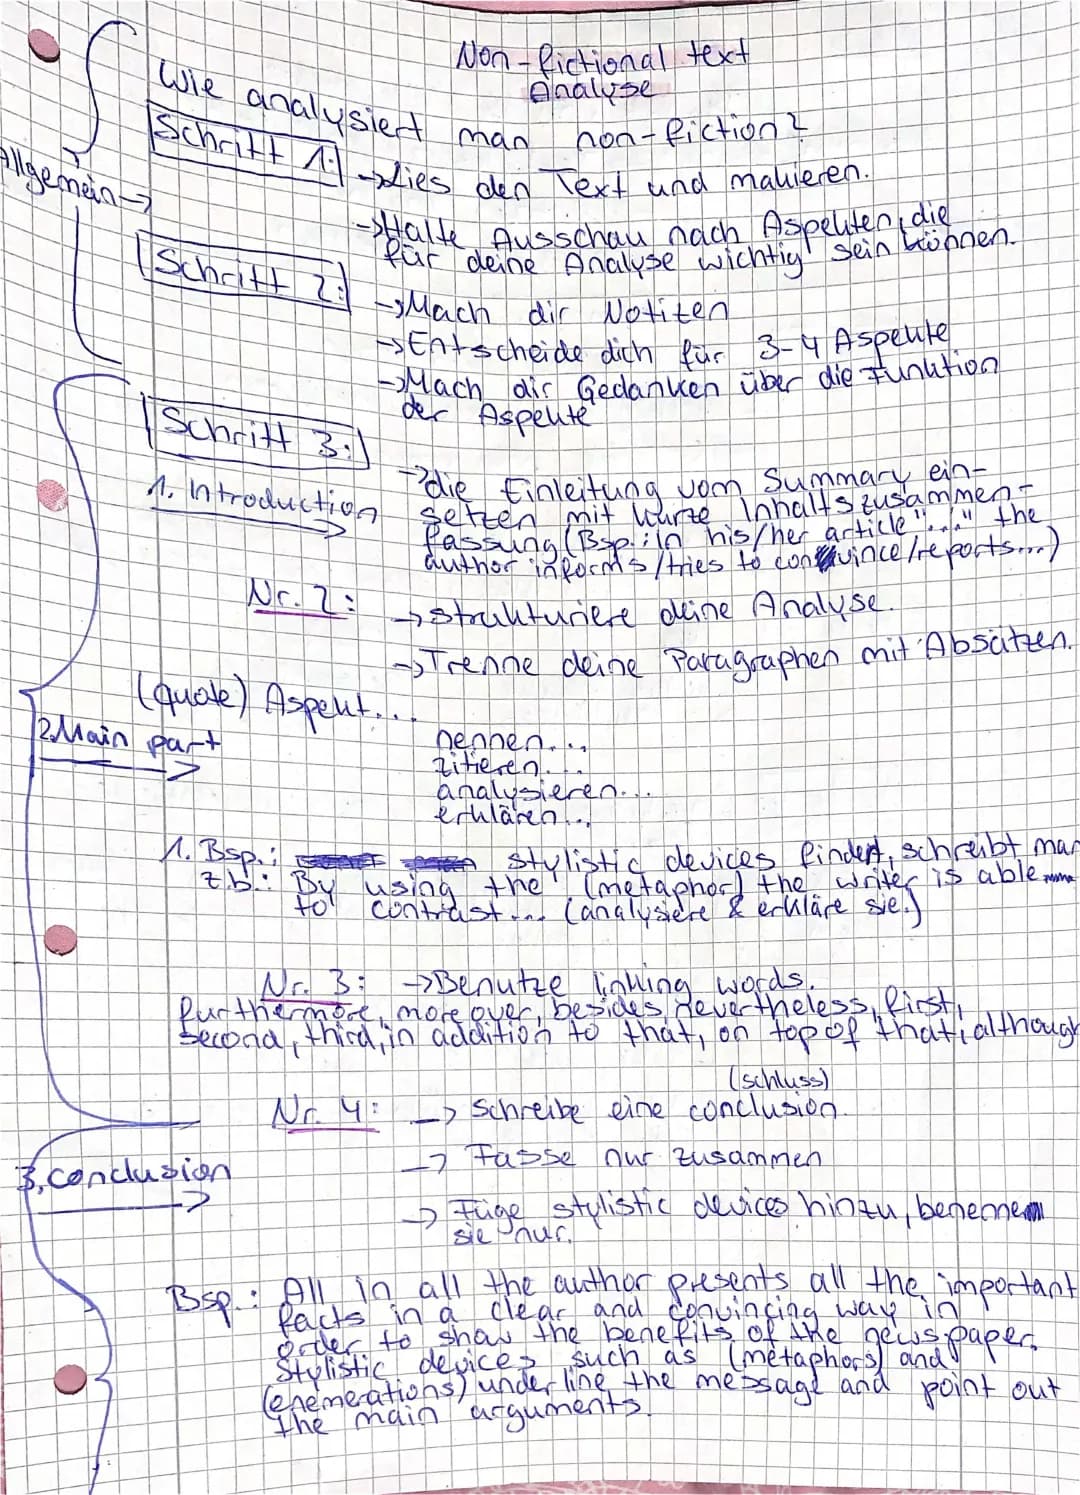 Non-fictional text
Analyse
Wie analysiert man non-fiction?
Schritt 1:
Allgemein→
→Lies den Text und makieren.
→Halte Ausschau nach Aspekten, die
für deine Analyse wichtig sein können.
Schritt 2:
→Mach dir Notiten
→Entscheide dich für 3-4 Aspekte
→Mach dir Gedanken über die Funktion
der Aspekte
Schritt 3:
1. Introduction
→die Einleitung vom Summary ein-
setzen mit kurze Inhaltszusammen-
fassung (Bsp.: in his/her article "..." the
author informs/tries to convince/reports...)
Nr. 2:
→strukturiere deine Analyse.
→Trenne deine Paragraphen mit Absätzen.
(quote) Aspekt...
2.Main part
nennen...
zitieren...
analysieren...
erklären...
1. Bsp.: stylistic devices findet, schreibt man
z.b.: By using the (metaphor) the writer is able
to contrast... (analysiere & erkläre sie.)
Nr. 3: →Benutze linking words.
furthermore, more over, besides, nevertheless, first,
second, third, in addition to that, on top of that, although
(schluss)
Nr. 4: → schreibe eine conclusion.
3, conclusion
→ Fasse nur zusammen
→ Füge stylistic devices hinzu, benenne
sie nur.
Bsp.: All in all the author presents all the important
facts in a clear and convincing way in
order to show the benefits of the newspaper.
Stylistic devices such as (metaphors) and
(enemerations) underline the message and point out
the main arguments.